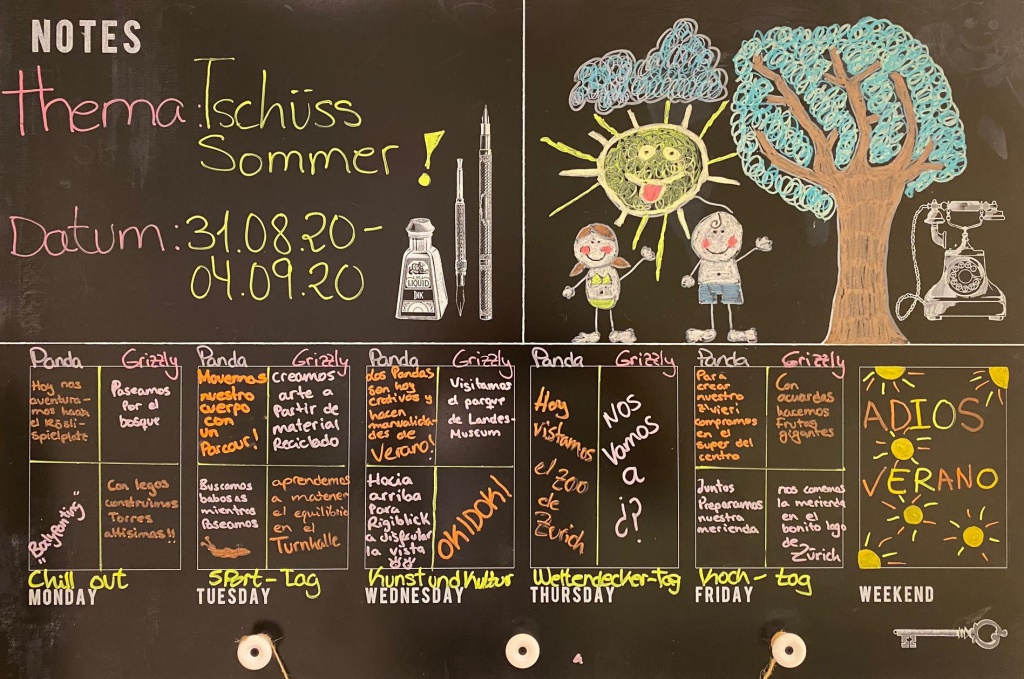 NOTES
Thema: Tschüss
Sommer!
Datum: 31.08.20 -
04.09.20
LIQUID
INK
Panda
Grizzly
Hoy nos
aventura-
mos hacia
el Rösli-
spielplatz
Paseamos
Por el
bosque
"Bodypainting"
Con legos
construimos
Torres
altisimas!!
Chill out
MONDAY
Panda
Grizzly
Movemos
nuestro
cuerpo
con
un
Parcour!
creamos
arte a
Partir de
material
Reciclado
Buscamos
babosas
mientras
Paseamos
aprendemos
a matener
el equilibrio
en el
Turnhalle
Sport-Tag
TUESDAY
Panda
Grizzly
dos Pandas
son hoy
creativos y
hacen
manualida-
des de
Verano!
Visitamos
el parque
de Landes-
Museum
Hacia
arriba
Para
Rigiblick
a disfrutar
la vista
OKIDOKI
Kunst und Kultur
WEDNESDAY
Panda
Grizzly
Hoy
vistamos
el Zoo
de
Zürich
Nos
Vamos
a
¿?
Weltendecker-Tag
THURSDAY
Panda
Grizzly
Para
crear
nuestro
z'vieri
compramos
en el
super del
centro
Con
acuardas
hacemos
frutas
gigantes
Juntos
Preparamos
nuestra
merienda
nos comemos
la merienda
en el
bonito lago
de
Zürich
Koch-tag
FRIDAY
ADIOS
VERANO
WEEKEND